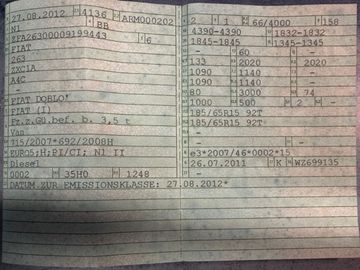 27.08.2012 4136 ARM000202
N1 BB
ZFA26300009199443 6
FIAT
263
ZXC1A
A4C
FIAT DOBLO'
FIAT (I)
Fz.z.Gü.bef. b. 3,5 t
Van
715/2007*692/2008H
EURO5;H;PI/CI; N1 II
Diesel
0002 35H0 1248
DATUM ZUR EMISSIONSKLASSE: 27.08.2012*
2 1 66/4000 158
4390-4390 1832-1832
1845-1845 1345-1345
- 60 -
133 2020 2020
1090 1140 -
1090 1140 -
80 3000 74
1000 500 2 -
185/65R15 92T
185/65R15 92T
-
-
- -
e3*2007/46*0002*15
26.07.2011 K WZ699135
-